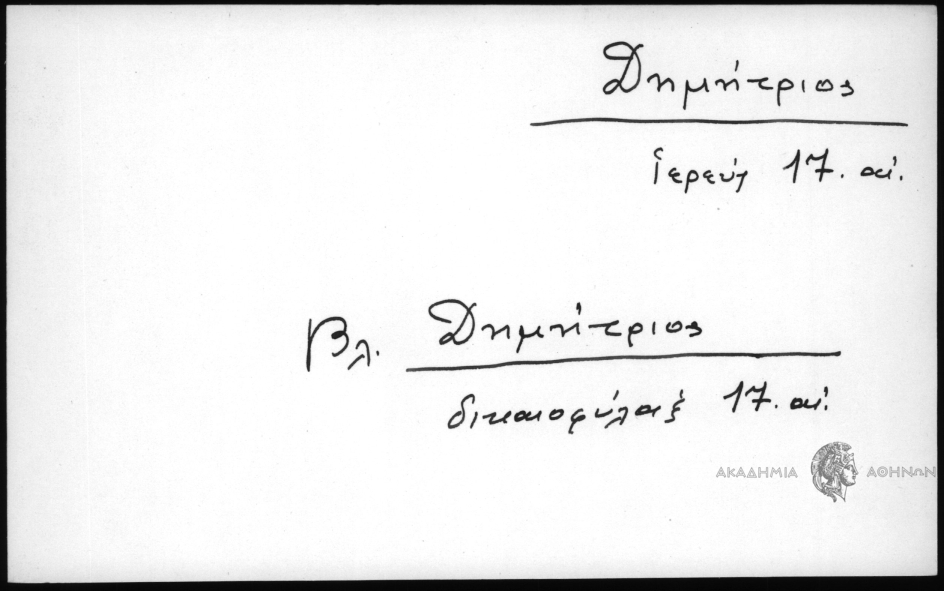 Δημήτριος
ἱερεύς 17. αἰ.
Βλ. Δημήτριος
δικαιοφύλαξ 17. αἰ.
ΑΚΑΔΗΜΙΑ ΑΘΗΝΩΝ